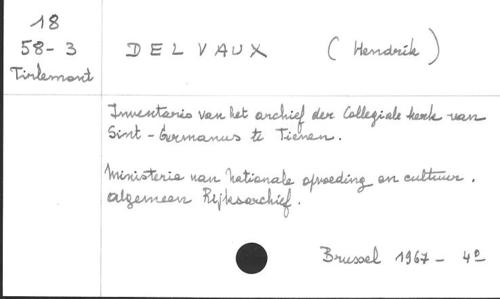 18
58-3
Tirlemont
DELVAUX (Hendrik)
Inventaris van het archief der Collegiale kerk van
Sint-Germanus te Tienen.
Ministerie van Nationale opvoeding en cultuur.
Algemeen Rijksarchief.
Brussel 1967 - 4º